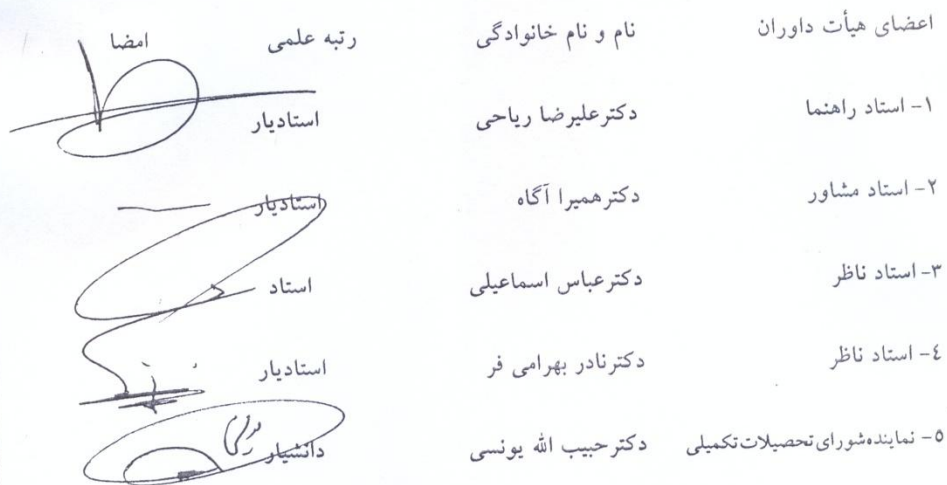 اعضای هیأت داوران نام و نام خانوادگی رتبه علمی امضا
۱- استاد راهنما دکترعلیرضا ریاحی استادیار
۲- استاد مشاور دکترهمیرا آگاه استادیار
۳- استاد ناظر دکترعباس اسماعیلی استاد
٤- استاد ناظر دکترنادر بهرامی فر استادیار
٥- نماینده‌شورای‌تحصیلات‌تکمیلی دکترحبیب الله یونسی دانشیار